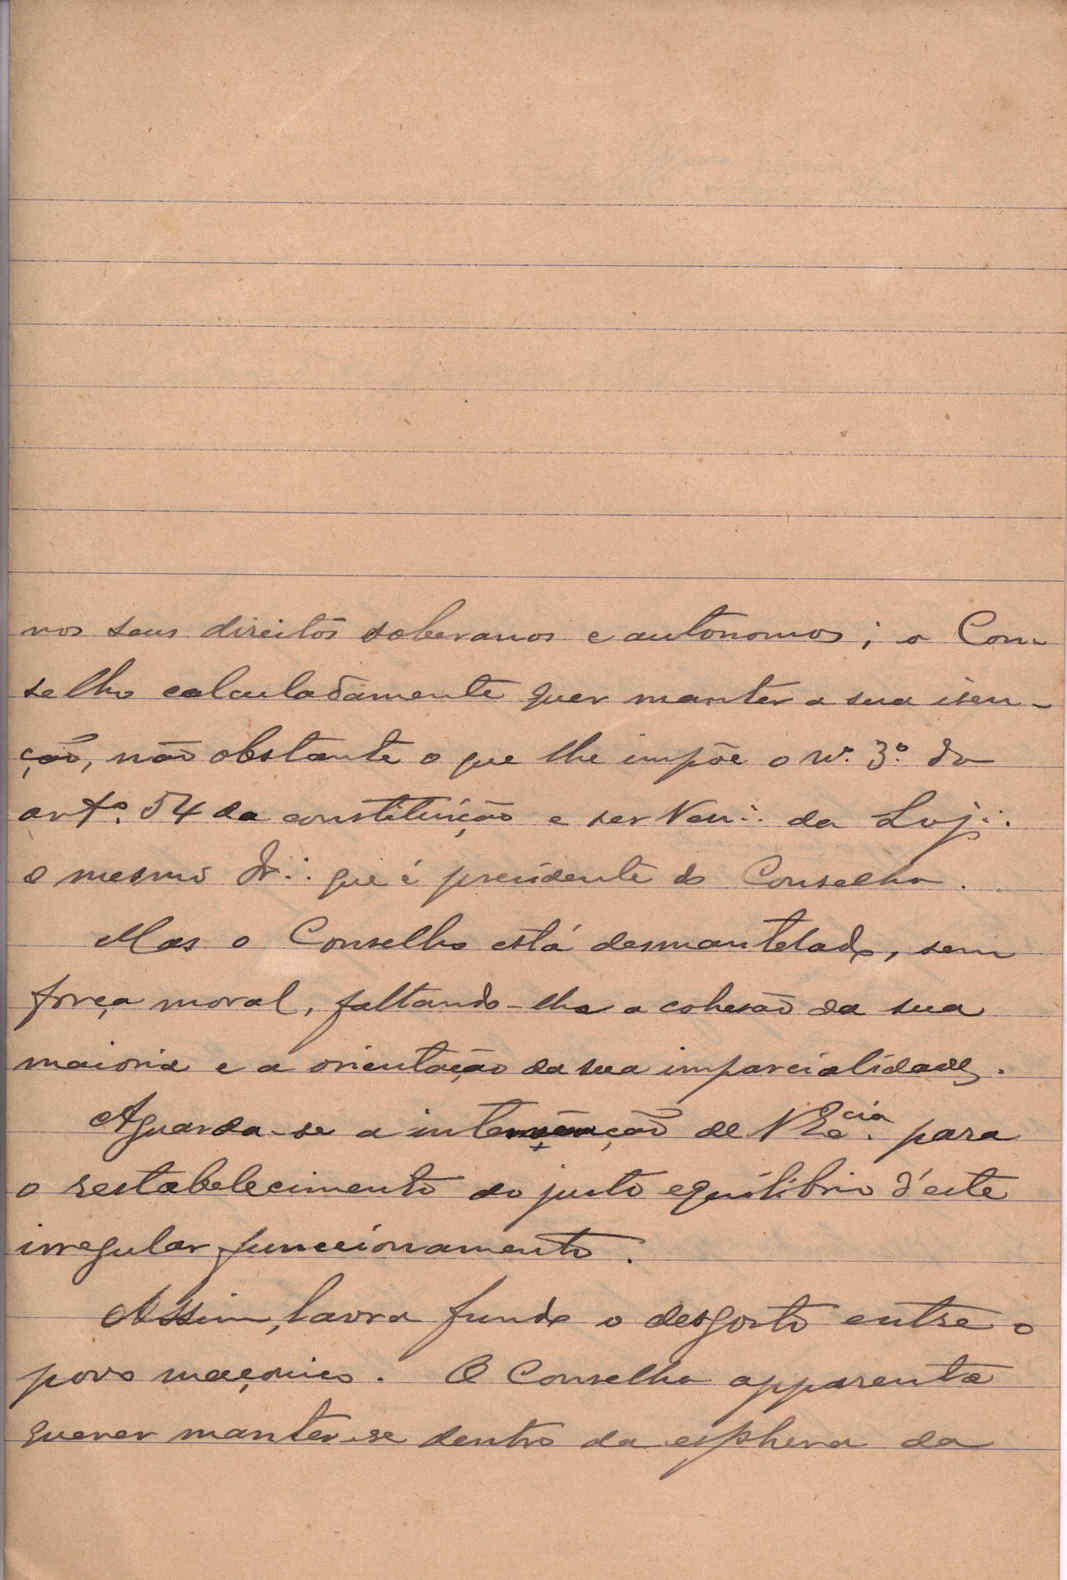 nos seus direitos soberanos e autonomos; o Con-
selho calculadamente quer manter a sua isen-
ção, não obstante o que lhe impõe o n.º 3.º do
art.º 54 da constituição e ser Ven∴ da Loj∴
o mesmo Ir∴ que é presidente do Conselho.
Mas o Conselho está desmantelado, sem
força moral, faltando-lhe a cohesão da sua
maioria e a orientação da sua imparcialidade.
Aguarda-se a intervenção de V Ex.cia para
o restabelecimento do justo equilibrio d'este
irregular funccionamento.
Assim, lavra fundo o desgosto entre o
povo maçonico. O Conselho apparenta
querer manter-se dentro da esphera da